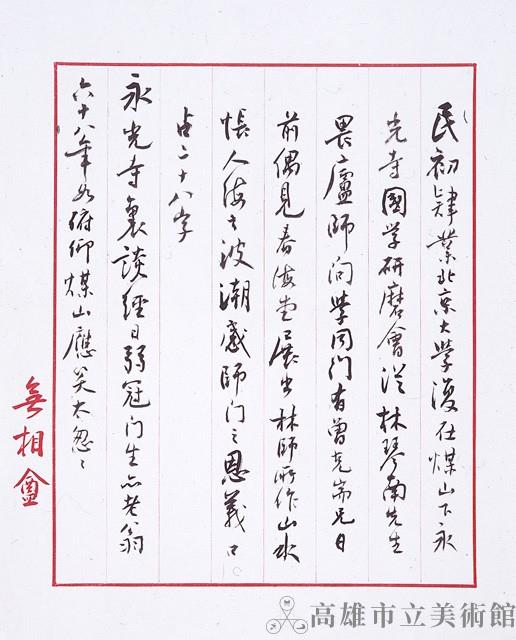 民初肄業北京大學復在煤山下永
光寺國学研磨會從林琴南先生
畏廬師問學同门有曾克耑兄日
前偶見春海堂展出林師所作山水
悵人海之波潮感師门之恩義口
占二十八字
永光寺裏談經日弱冠门生亦老翁
六十八年如俯仰煤山應笑太怱〻
無相盦
高雄市立美術館